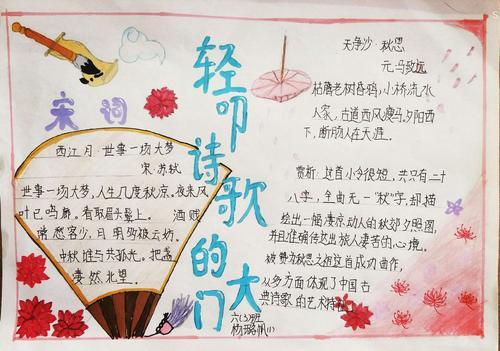 轻叩诗歌的大门
宋词
西江月·世事一场大梦
宋·苏轼
世事一场大梦，人生几度秋凉。夜来风
叶已鸣廊。看取眉头鬓上。 酒贱
常愁客少，月明多被云妨。
中秋谁与共孤光。把盏
凄然北望。
天净沙·秋思
元·马致远
枯藤老树昏鸦，小桥流水
人家，古道西风瘦马。夕阳西
下，断肠人在天涯。
赏析：这首小令很短，共只有二十
八字，全曲无一“秋”字，却描
绘出一幅凄凉动人的秋郊夕照图，
并且准确传达出旅人凄苦的心境。
被赞为秋思之祖这首成功曲作，
从多方面体现了中国古
典诗歌的艺术特征。
六(3)班